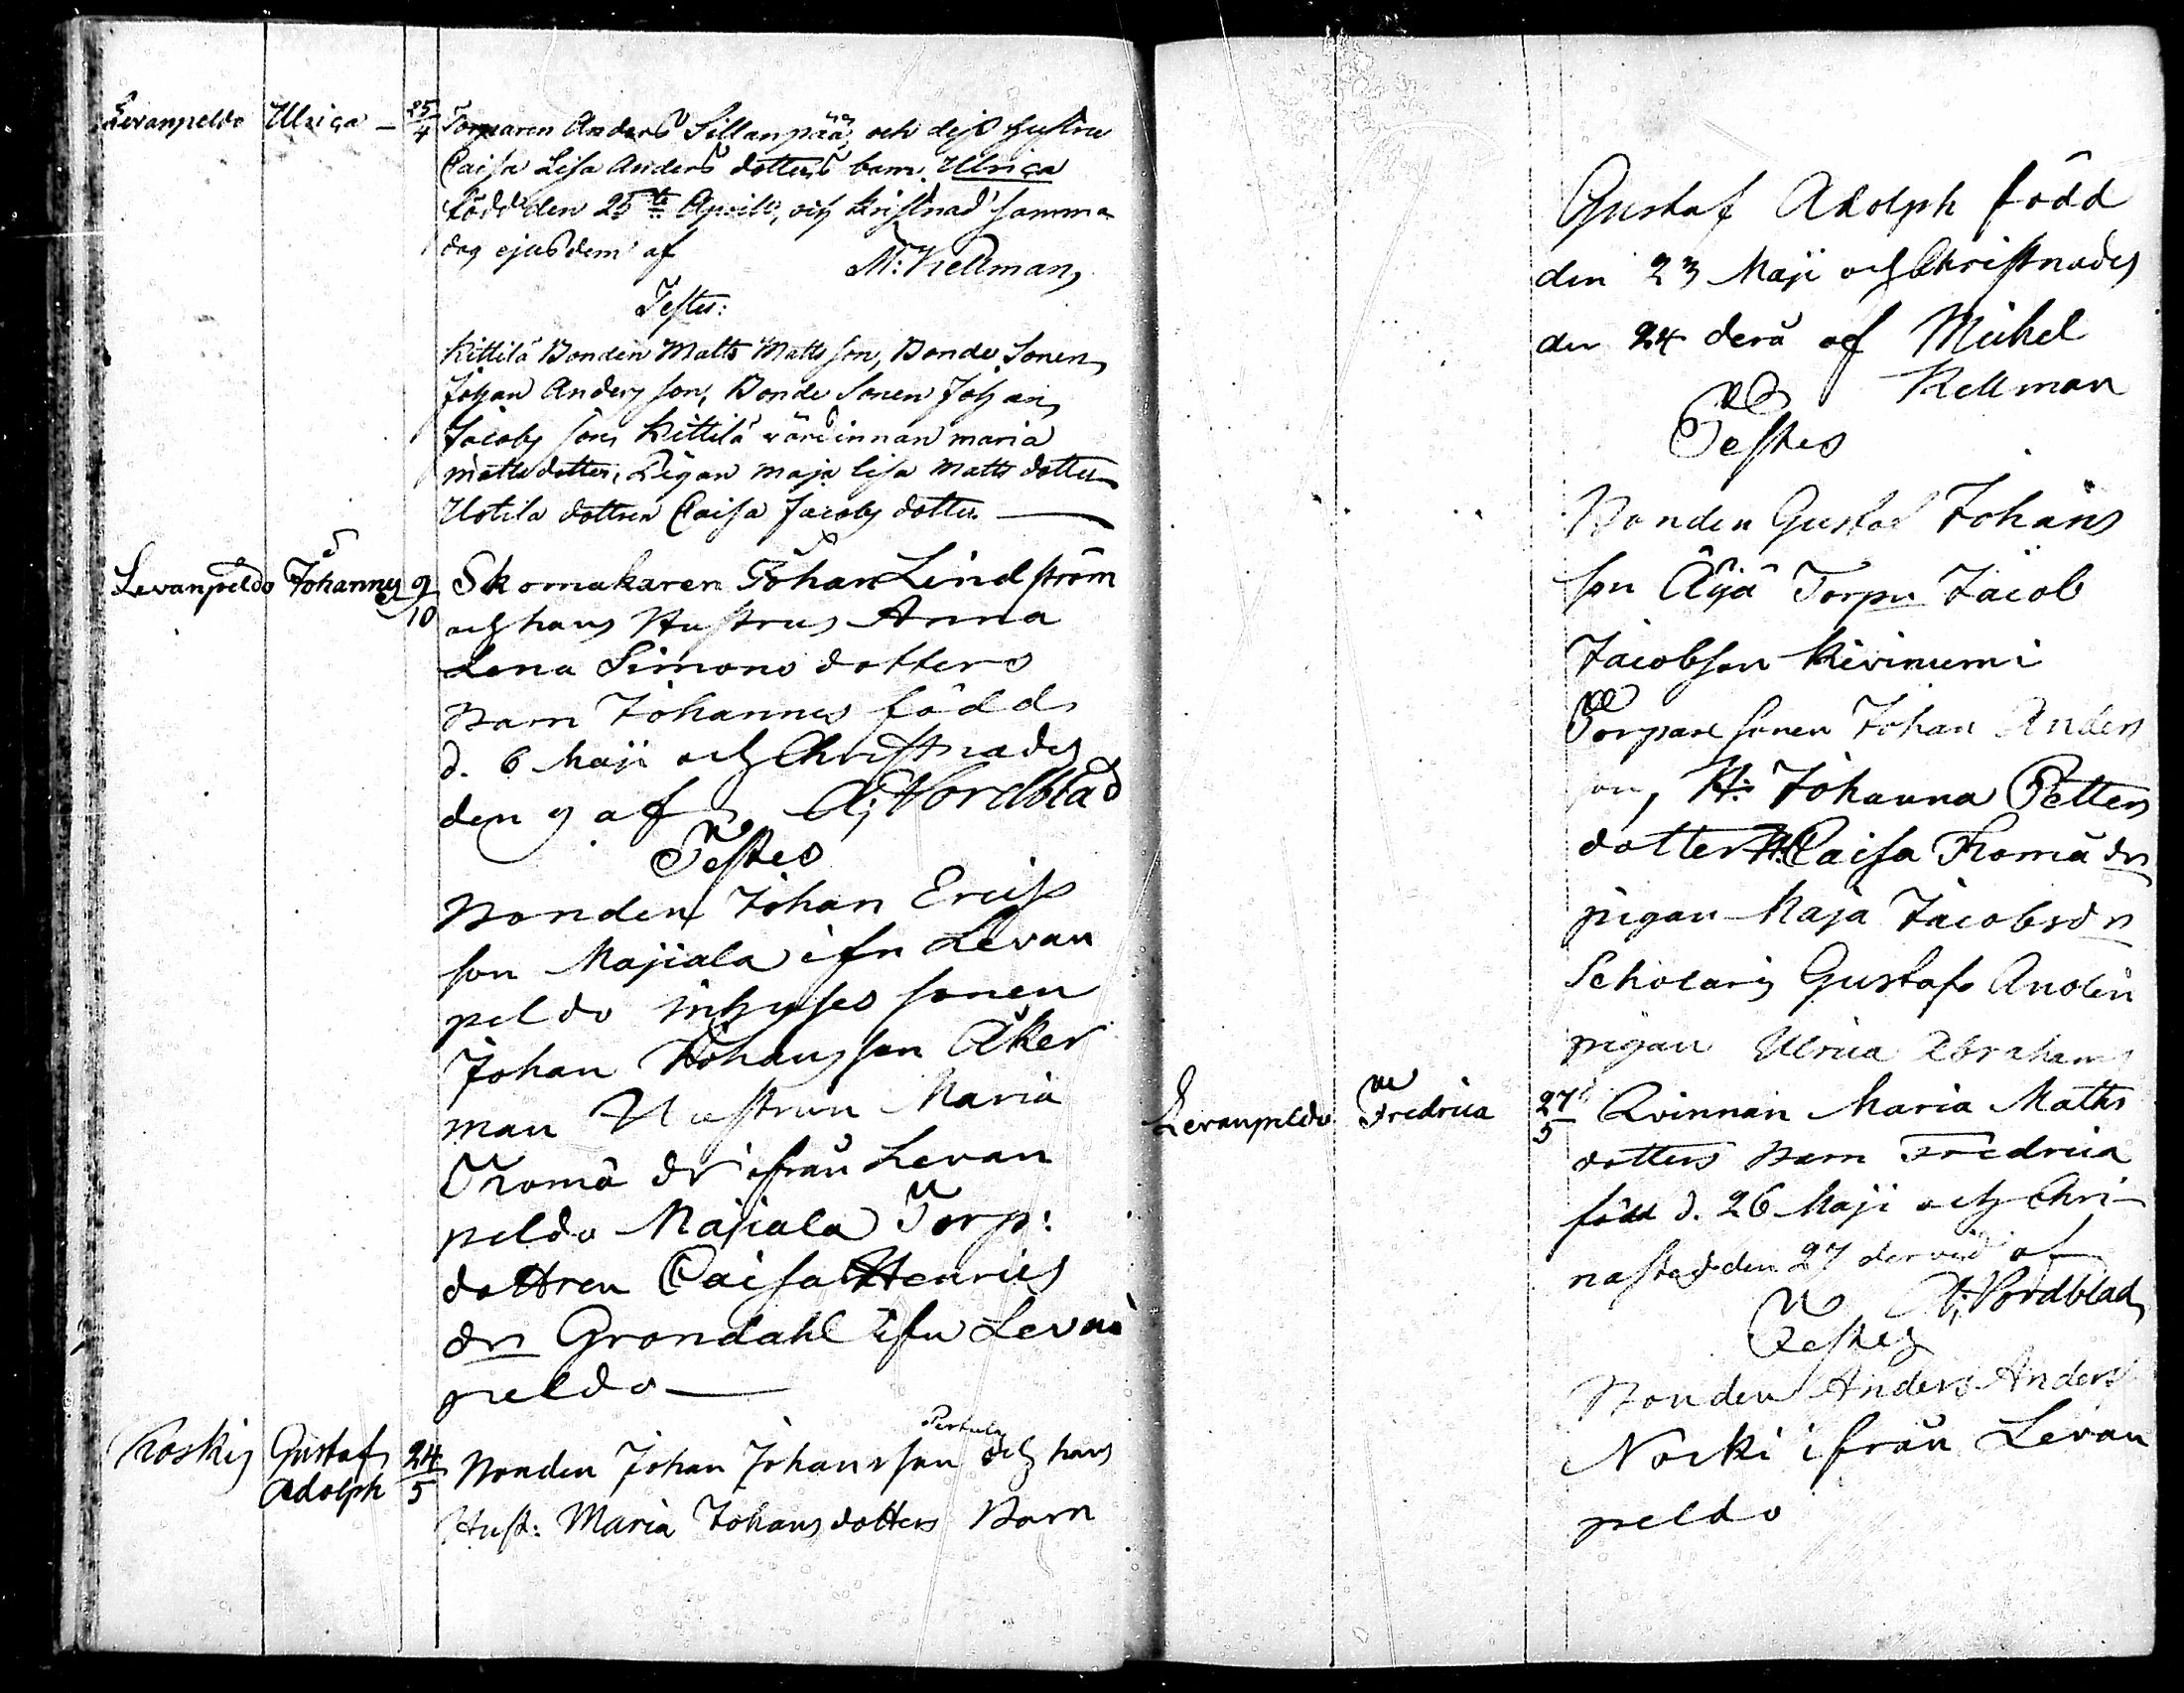 Levanpeldo Ulrica — 25/4 Torparen Anders Sillanpää och dess hustru
Caisa Lisa Anders dotters barn. Ulrica
född den 25te Aprill, och kristnad samma
dag ejusdem af M: Kellman,
Testes:
Kittilä Bonden Matts Mattsson, Bonde Sonen
Johan Andersson, Bonde Sonen Johan
Jacobsson Kittilä värdinnan maria
matts dotter, Pigan maja lisa matts dotter
Uotila dottren Caisa Jacobs dotter —
Levanpeldo Johannes 9/10 Skomakaren Johan Lindström
och hans Hustrus Anna
Lena Simons dotters
Barn Johannes född
d. 6 Maji och Christnades
den 9 af A; Nordblad
Testes
Bonden Johan Erics
son Majiala ifn Levan
peldo inhyses sonen
Johan Johansson Åker
man Hustrun Maria
Thoma dr ifrån Levan
peldo Majiala Torp:
dottren Caisa Henrics
dr Grondahl ifn Levan
peldo —
Koskis Gustaf Adolph 24/5 Bonden Johan Johansson Perhula och hans
Hust: Maria Johans dotters Barn
Gustaf Adolph född
den 23 Maji och Christnades
den 24 derå af Michel
Kellman
Testes
Bonden Gustaf Johans
son Äijä Torpn Jacob
Jacobson Kiviniemi
Torpare sonen Johan Anders
son, H: Johanna Petters
dotter H: Caisa Thoma dr
pigan Maja Jacobsdr
Scholaris Gustaf Andlin
pigan Ulrica Abrahams
Levanpeldo Fredrica 27/5 Qvinnan Maria Matts
dotters Barn Fredrica
född d. 26 Maji och Chri-
nasted den 27 dervid af
A; Nordblad
Testes
Bonden Anders Anders
Nocki ifrån Levan
peldo